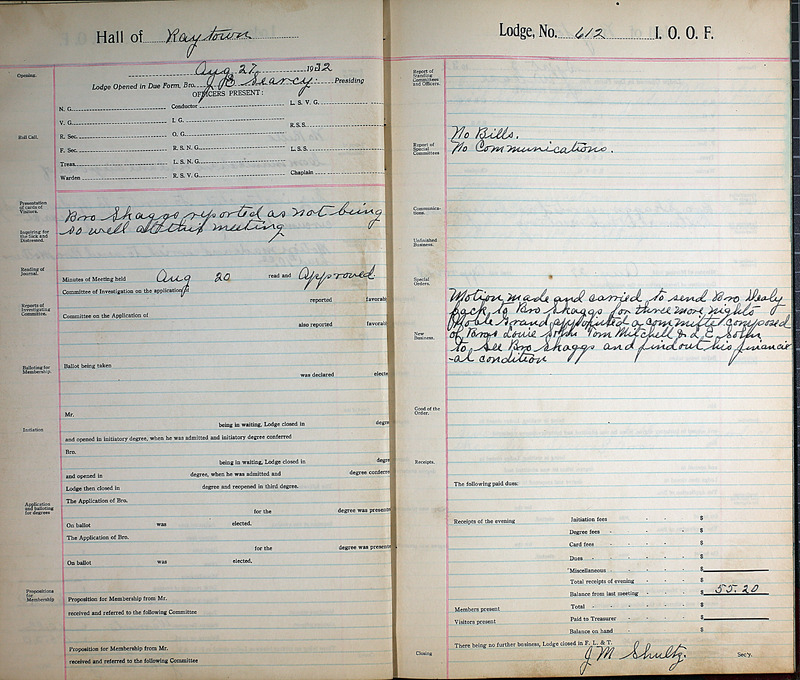 Hall of Raytown
Aug 27, 1932
Lodge Opened in Due Form, Bro. J B Searcy. Presiding
OFFICERS PRESENT:
N. G. Conductor L. S. V. G.
V. G. I. G. R.S.S.
R. Sec. O. G.
F. Sec. R. S. N. G. L.S.S.
Treas. L. S. N. G.
Warden R. S. V. G. Chaplain
Opening.
Roll Call.
Presentation of cards of Visitors.
Bro Skaggs reported as not being
so well at this meeting
Inquiring for the Sick and Distressed.
Reading of Journal.
Minutes of Meeting held Aug 20 read and Approved
Committee of Investigation on the application of
reported favorab
Reports of Investigating Committee.
Committee on the Application of
also reported favorab
Balloting for Membership.
Ballot being taken
was declared elected
Mr.
being in waiting, Lodge closed in degre
Initiation
and opened in initiatory degree, when he was admitted and initiatory degree conferred
Bro.
being in waiting, Lodge closed in degre
and opened in degree, when he was admitted and degree conferre
Lodge then closed in degree and reopened in third degree.
Application and balloting for degrees
The Application of Bro.
for the degree was presente
On ballot was elected.
The Application of Bro.
for the degree was presente
On ballot was elected.
Propositions for Membership
Proposition for Membership from Mr.
received and referred to the following Committee
Proposition for Membership from Mr.
received and referred to the following Committee
Lodge, No. 612 I. O. O. F.
Report of Standing Committees and Officers.
No Bills.
No Communications.
Report of Special Committees
Communications.
Unfinished Business.
Special Orders.
Motion made and carried to send Bro Healy
back to Bro Skaggs for three more nights
Noble Grand appointed a committe composed
of Louie Sohn Tom Mitchell J. L. E. Sohn.
to see Bro Skaggs and find out his financi
-al condition
New Business.
Good of the Order.
Receipts.
The following paid dues:
Receipts of the evening Initiation fees $
Degree fees $
Card fees $
Dues $
Miscellaneous $
Total receipts of evening $
Balance from last meeting $ 55.20
Members present Total $
Visitors present Paid to Treasurer $
Balance on hand $
There being no further business, Lodge closed in F., L., & T.
Closing J M Shultz. Sec'y.